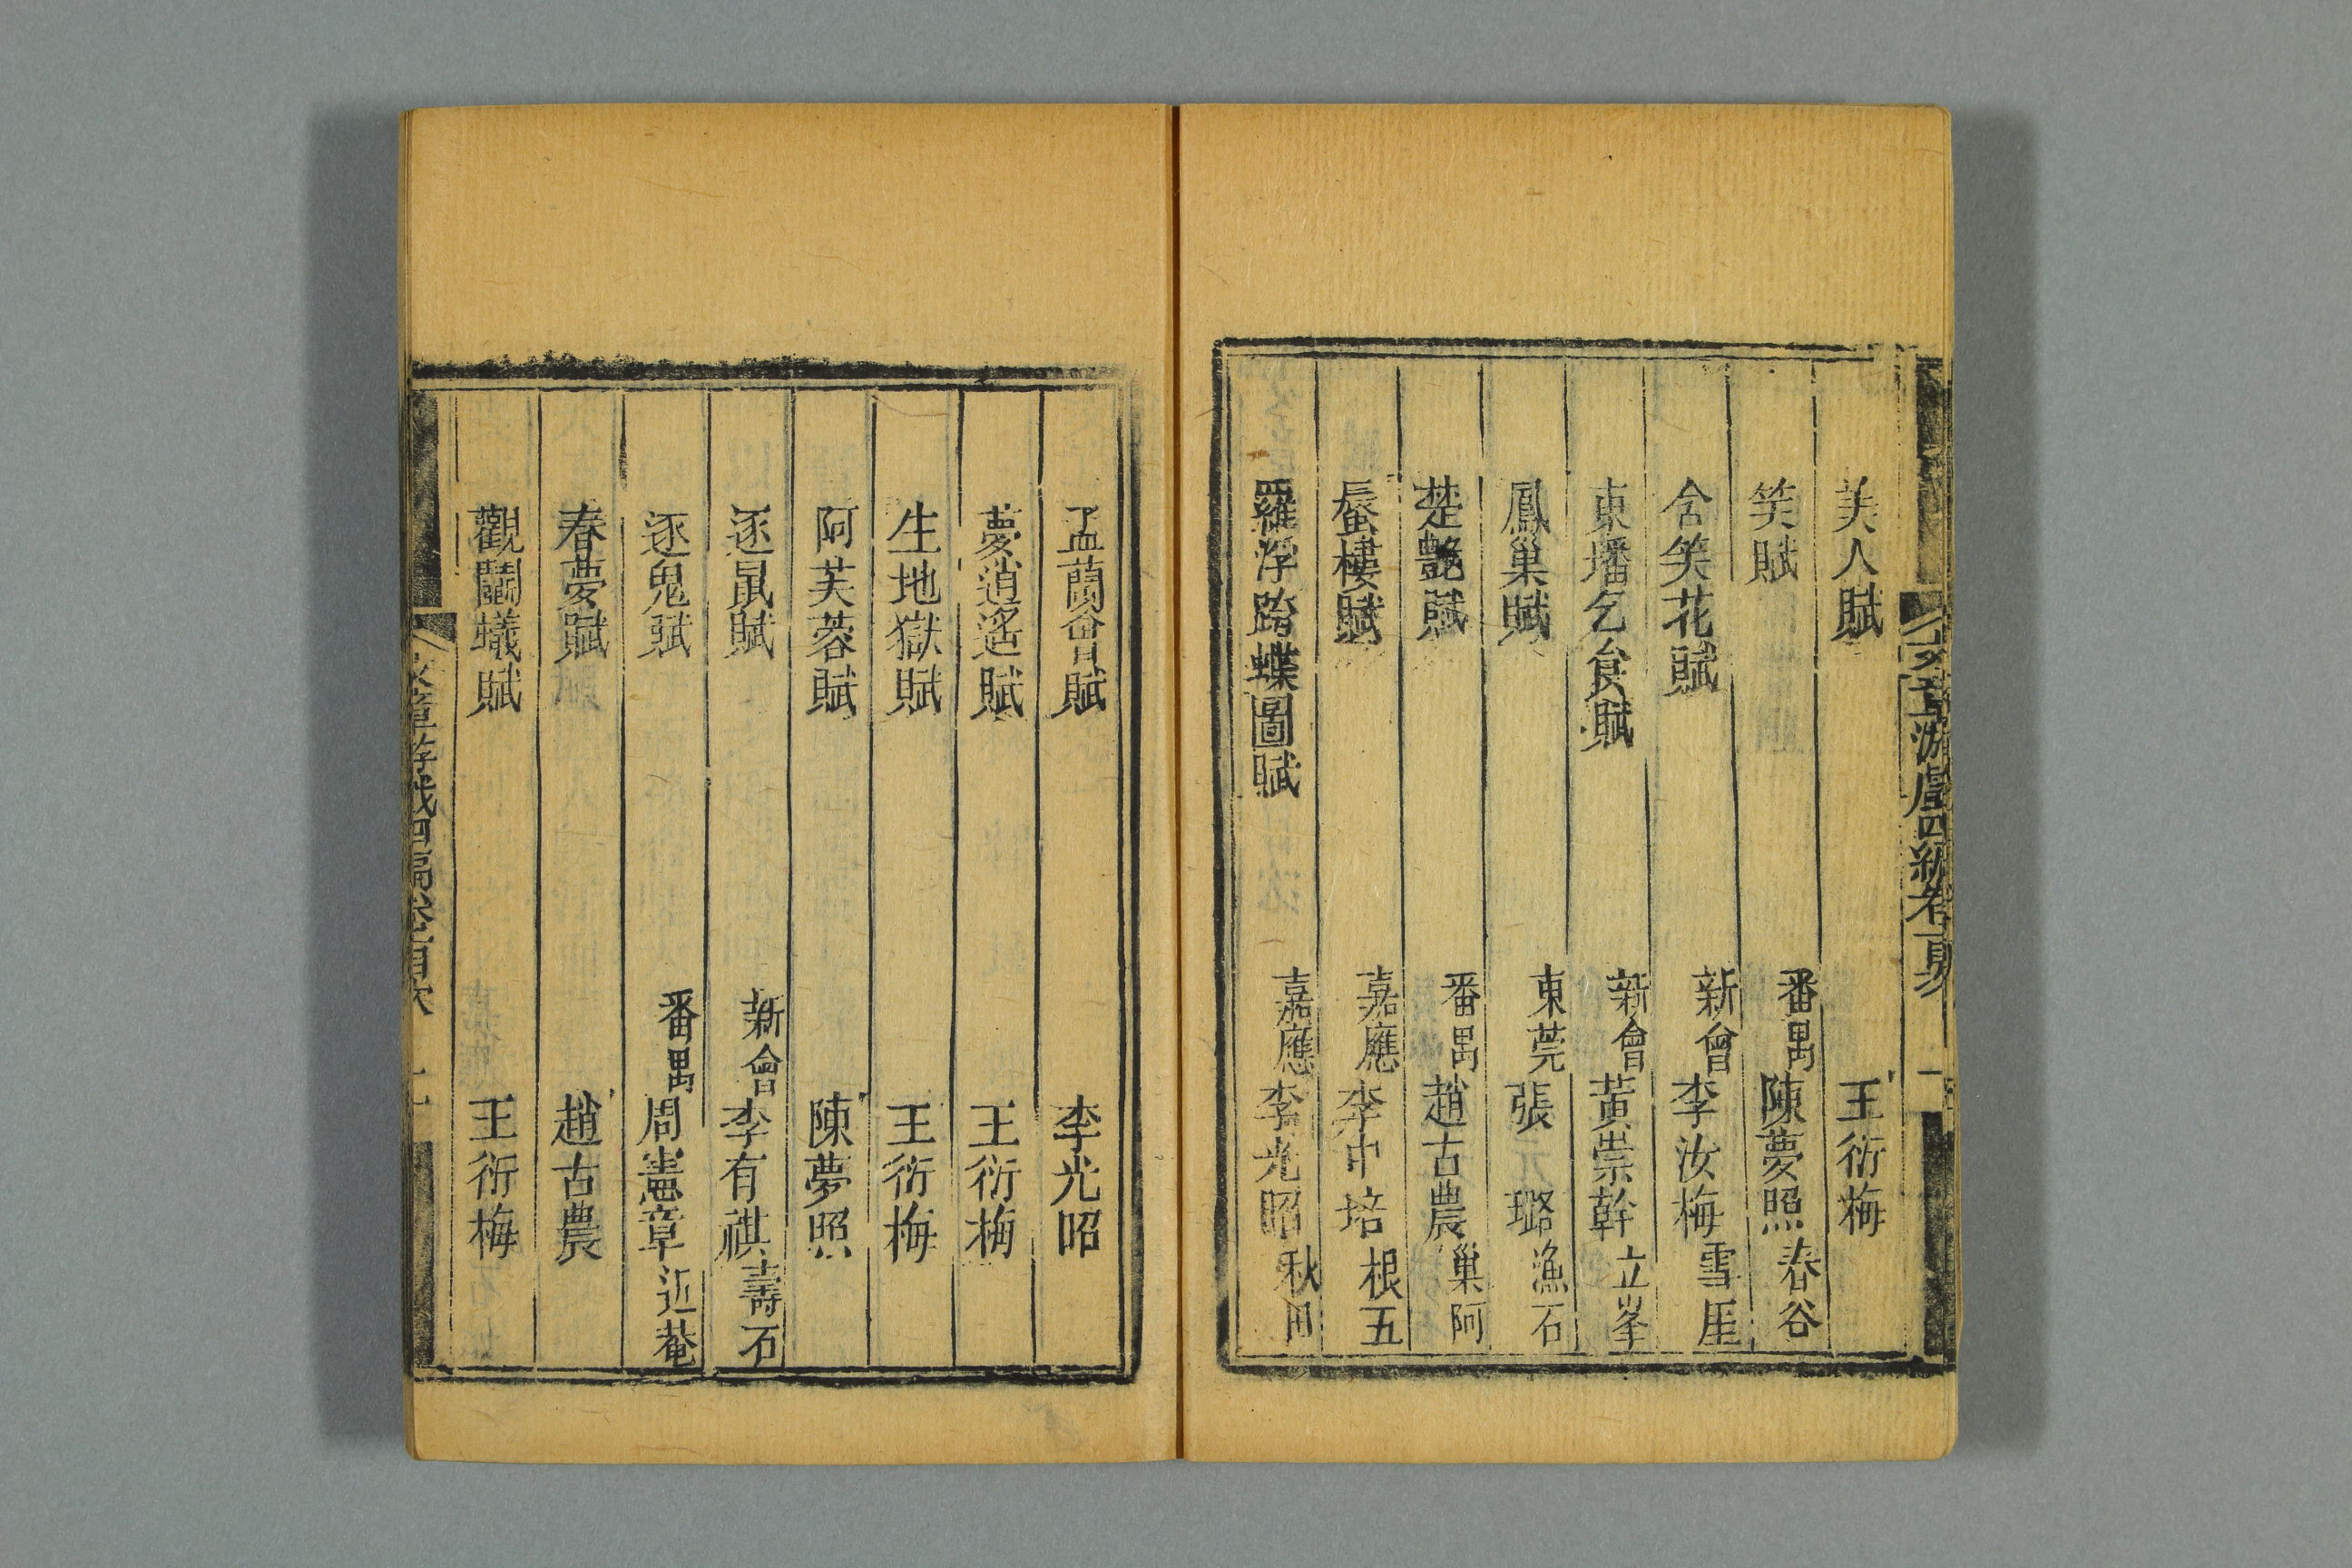 美人賦 王衍梅
笑賦 番禺 陳夢照 春谷
含笑花賦 新會 李汝梅 雪厓
東墦乞食賦 新會 黃崇幹 立峯
鳳巢賦 東莞 張元璐 漁石
楚艷賦 番禺 趙古農 巢阿
蜃樓賦 嘉應 李中培 根五
羅浮跨蝶圖賦 嘉應 李光昭 秋田
文章游戲四編卷首 一
盂蘭會賦 李光昭
夢逍遙賦 王衍梅
生地獄賦 王衍梅
阿芙蓉賦 陳夢照
逐鼠賦 新會 李有祺 壽石
逐鬼賦 番禺 周憲章 近菴
春夢賦 趙古農
觀鬬蟻賦 王衍梅
文章游戲四編卷首目次